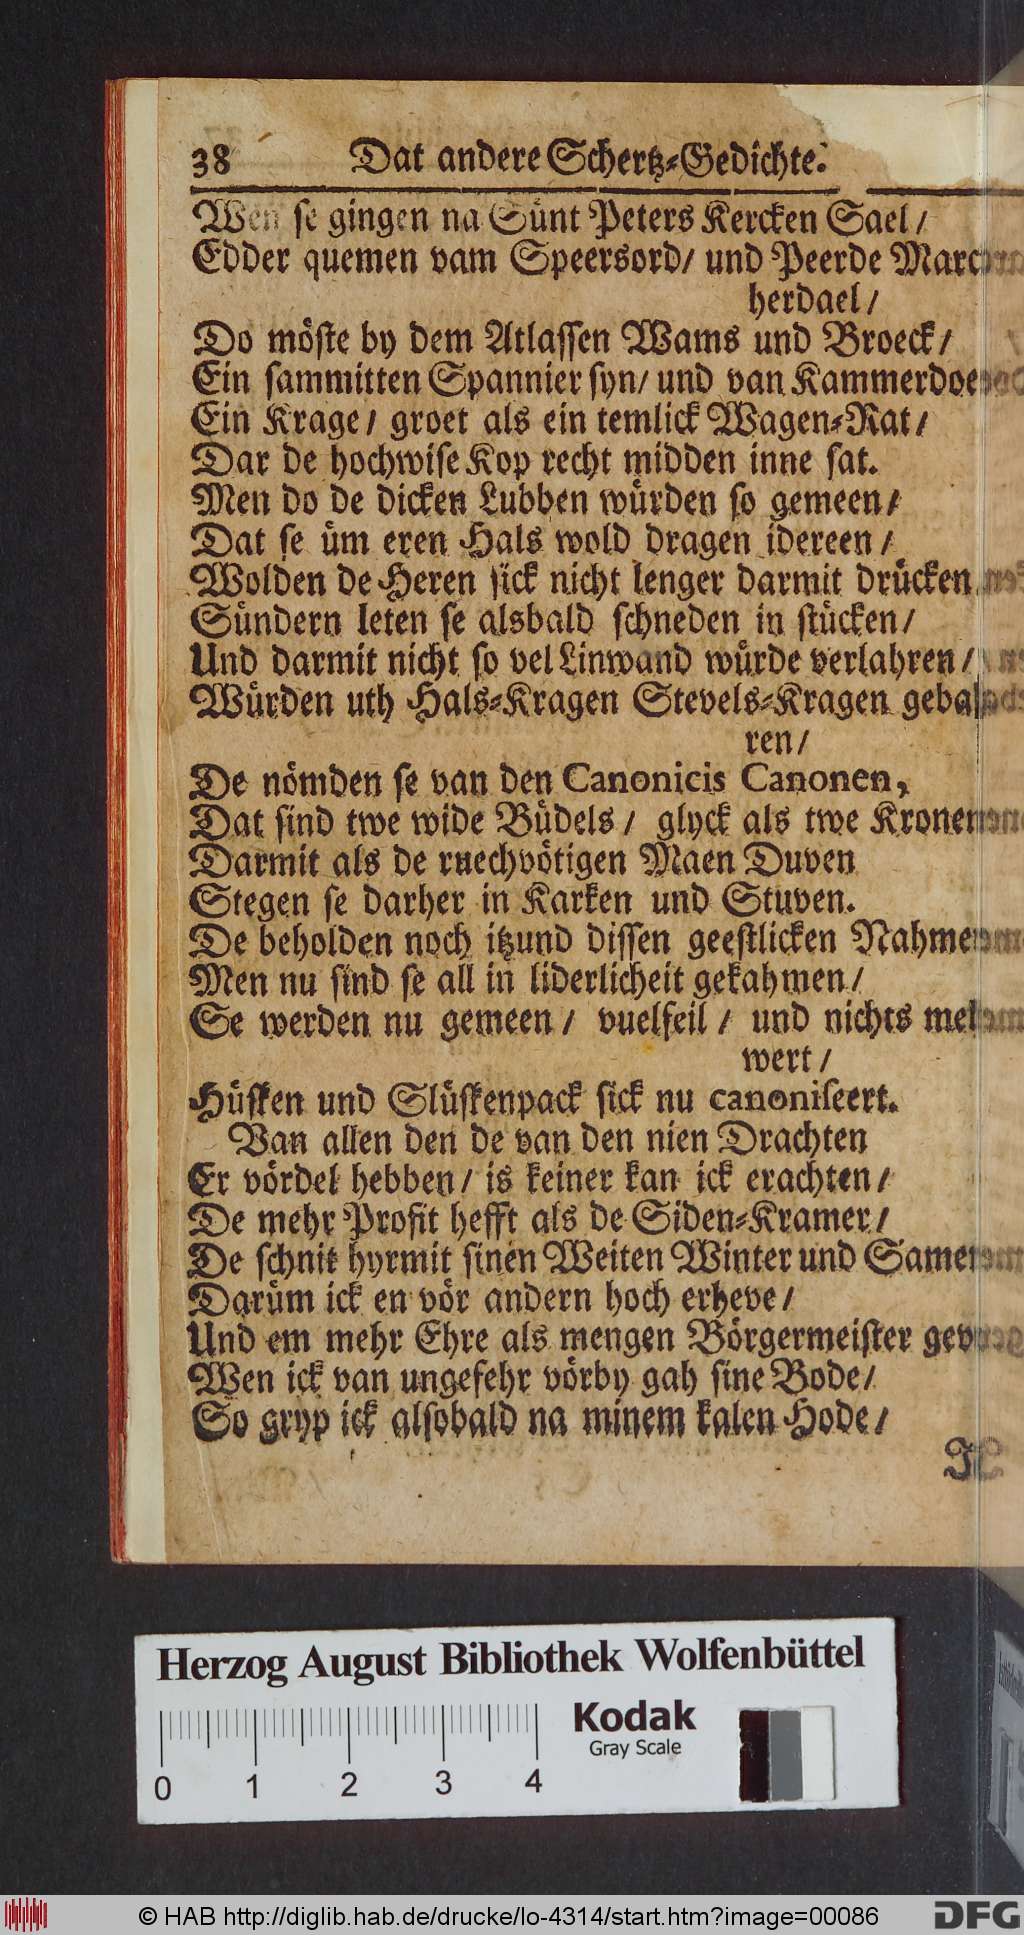 38 Dat andere Schertz-Gedichte.
Wen se gingen na Sünt Peters Kercken Sael /
Edder quemen vam Speersord / und Peerde Marc
herdael /
Do möste by dem Atlassen Wams und Broeck /
Ein sammitten Spannier syn / und van Kammerdoe
Ein Krage / groet als ein temlick Wagen-Rat /
Dar de hochwise Kop recht midden inne sat.
Men do de dicken Lubben würden so gemeen /
Dat se üm eren Hals wold dragen idereen /
Wolden de Heren sick nicht lenger darmit drücken
Sündern leten se alsbald schneden in stücken /
Und darmit nicht so vel Linwand würde verlahren /
Würden uth Hals-Kragen Stevels-Kragen geba
ren /
De nömden se van den Canonicis Canonen,
Dat sind twe wide Büdels / glyck als twe Kronen
Darmit als de ruechvötigen Maen Duven
Stegen se darher in Karken und Stuven.
De beholden noch itzund dissen geestlicken Nahme
Men nu sind se all in liderlicheit gekahmen /
Se werden nu gemeen / vuelfeil / und nichts meh
wert /
Hüsken und Slüskenpack sick nu canoniseert.
Van allen den de van den nien Drachten
Er vördel hebben / is keiner kan ick erachten /
De mehr Profit hefft als de Siden-Kramer /
De schnit hyrmit sinen Weiten Winter und Samer
Darüm ick en vör andern hoch erheve /
Und em mehr Ehre als mengen Börgermeister gev
Wen ick van ungefehr vörby gah sine Bode /
So gryp ick alsobald na minem kalen Hode /
Herzog August Bibliothek Wolfenbüttel
Kodak
Gray Scale
0 1 2 3 4
© HAB http://diglib.hab.de/drucke/lo-4314/start.htm?image=00086
DFG